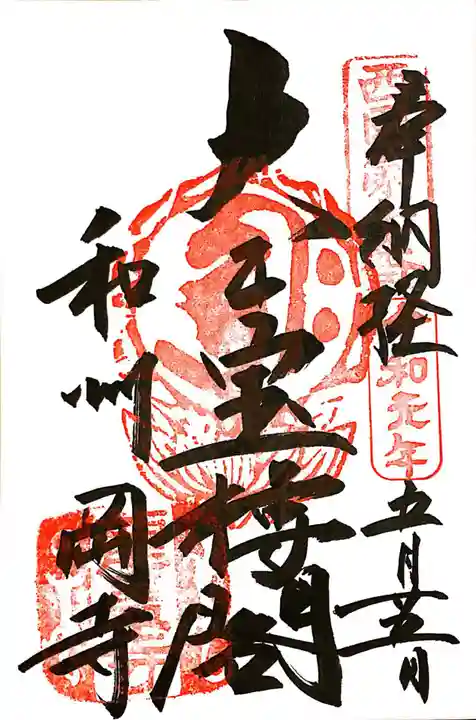 奉納経
西国
令和元年
五月廿五日
大宝楼閣
和州 岡寺